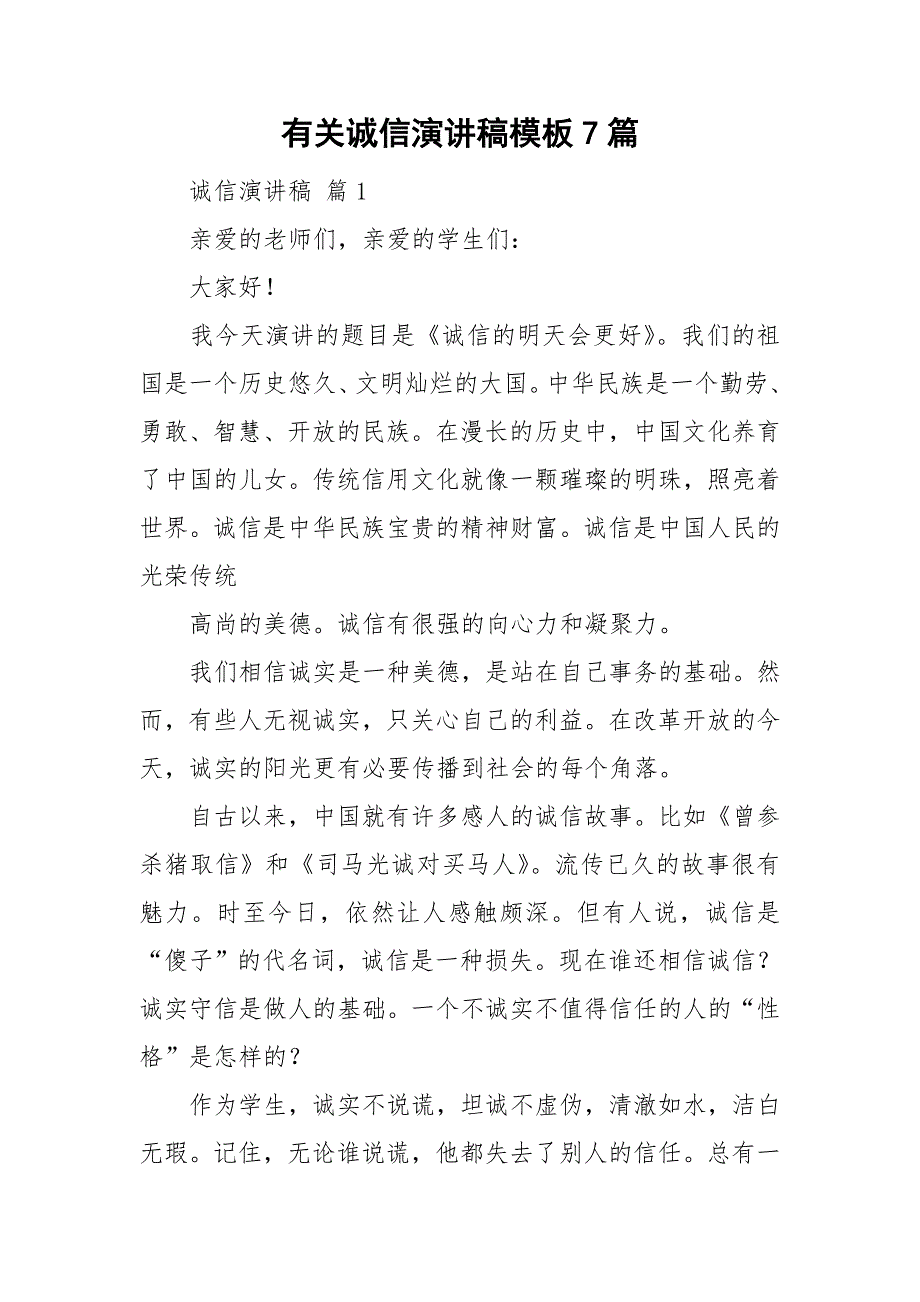 有关诚信演讲稿模板7篇
诚信演讲稿 篇1
亲爱的老师们，亲爱的学生们：
大家好！
我今天演讲的题目是《诚信的明天会更好》。我们的祖
国是一个历史悠久、文明灿烂的大国。中华民族是一个勤劳、
勇敢、智慧、开放的民族。在漫长的历史中，中国文化养育
了中国的儿女。传统信用文化就像一颗璀璨的明珠，照亮着
世界。诚信是中华民族宝贵的精神财富。诚信是中国人民的
光荣传统
高尚的美德。诚信有很强的向心力和凝聚力。
我们相信诚实是一种美德，是站在自己事务的基础。然
而，有些人无视诚实，只关心自己的利益。在改革开放的今
天，诚实的阳光更有必要传播到社会的每个角落。
自古以来，中国就有许多感人的诚信故事。比如《曾参
杀猪取信》和《司马光诚对买马人》。流传已久的故事很有
魅力。时至今日，依然让人感触颇深。但有人说，诚信是
“傻子”的代名词，诚信是一种损失。现在谁还相信诚信？
诚实守信是做人的基础。一个不诚实不值得信任的人的“性
格”是怎样的？
作为学生，诚实不说谎，坦诚不虚伪，清澈如水，洁白
无瑕。记住，无论谁说谎，他都失去了别人的信任。总有一